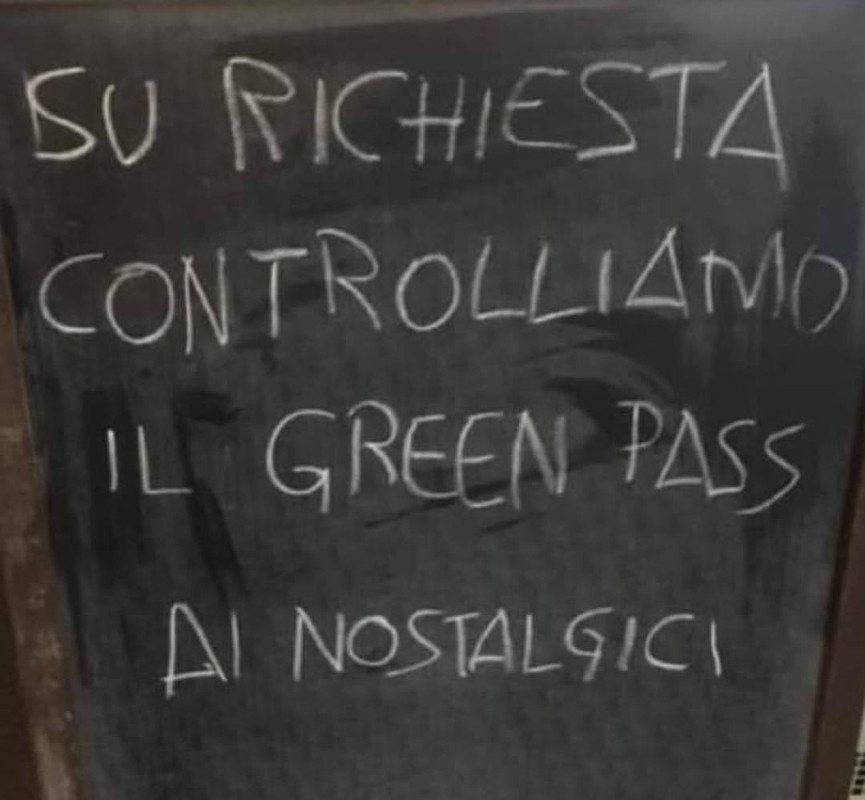 SU RICHIESTA
CONTROLLIAMO
IL GREEN PASS
AI NOSTALGICI